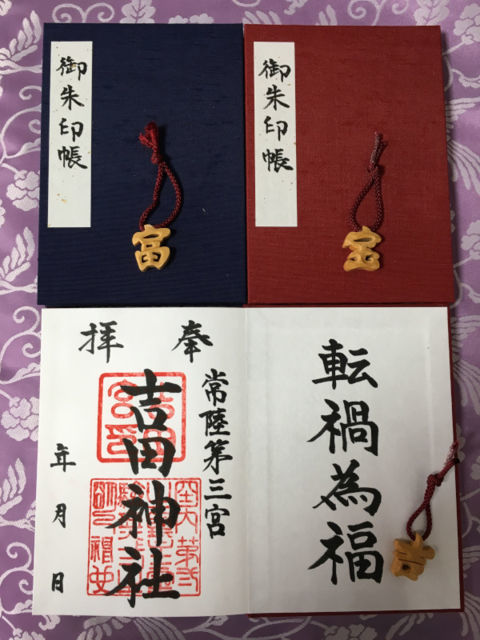 御朱印帳
富
御朱印帳
宝
転禍為福
吉
奉拝
常陸第三宮
吉田神社
年月日